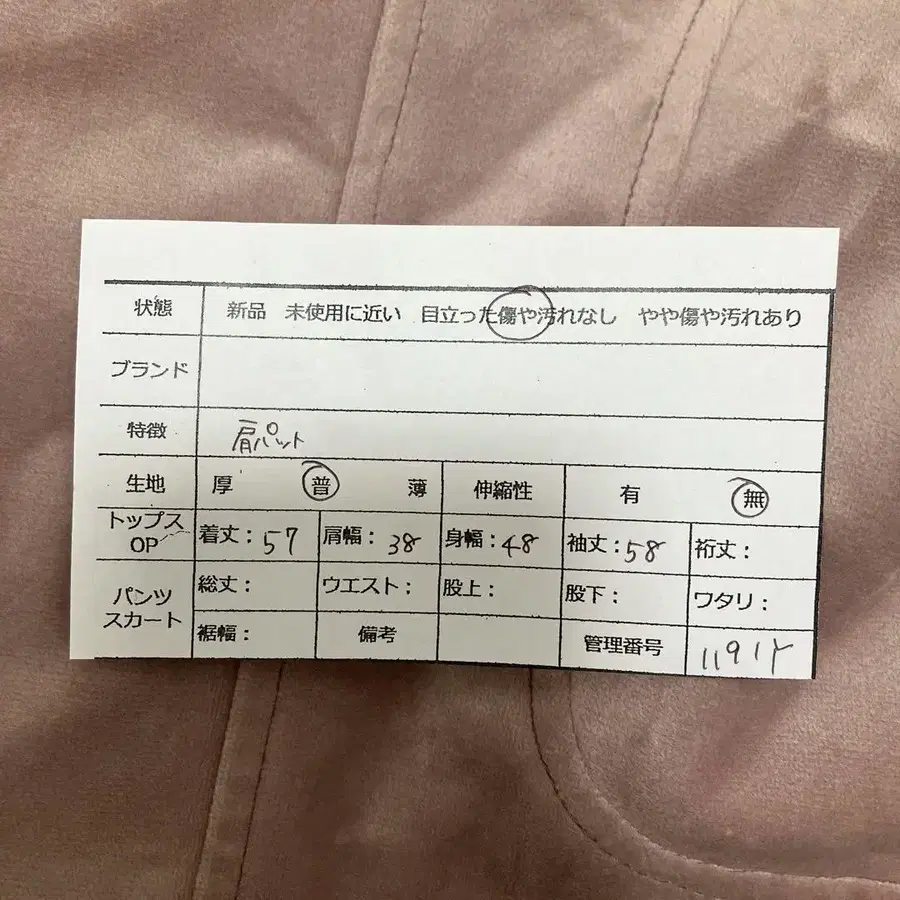 状態 新品 未使用に近い 目立った傷や汚れなし やや傷や汚れあり
ブランド
特徴 肩パット
生地 厚 普 薄 伸縮性 有 無
トップス
OP 着丈：57 肩幅：38 身幅：48 袖丈：58 裄丈：
パンツ
スカート
総丈： ウエスト： 股上： 股下： ワタリ：
裾幅： 備考 管理番号